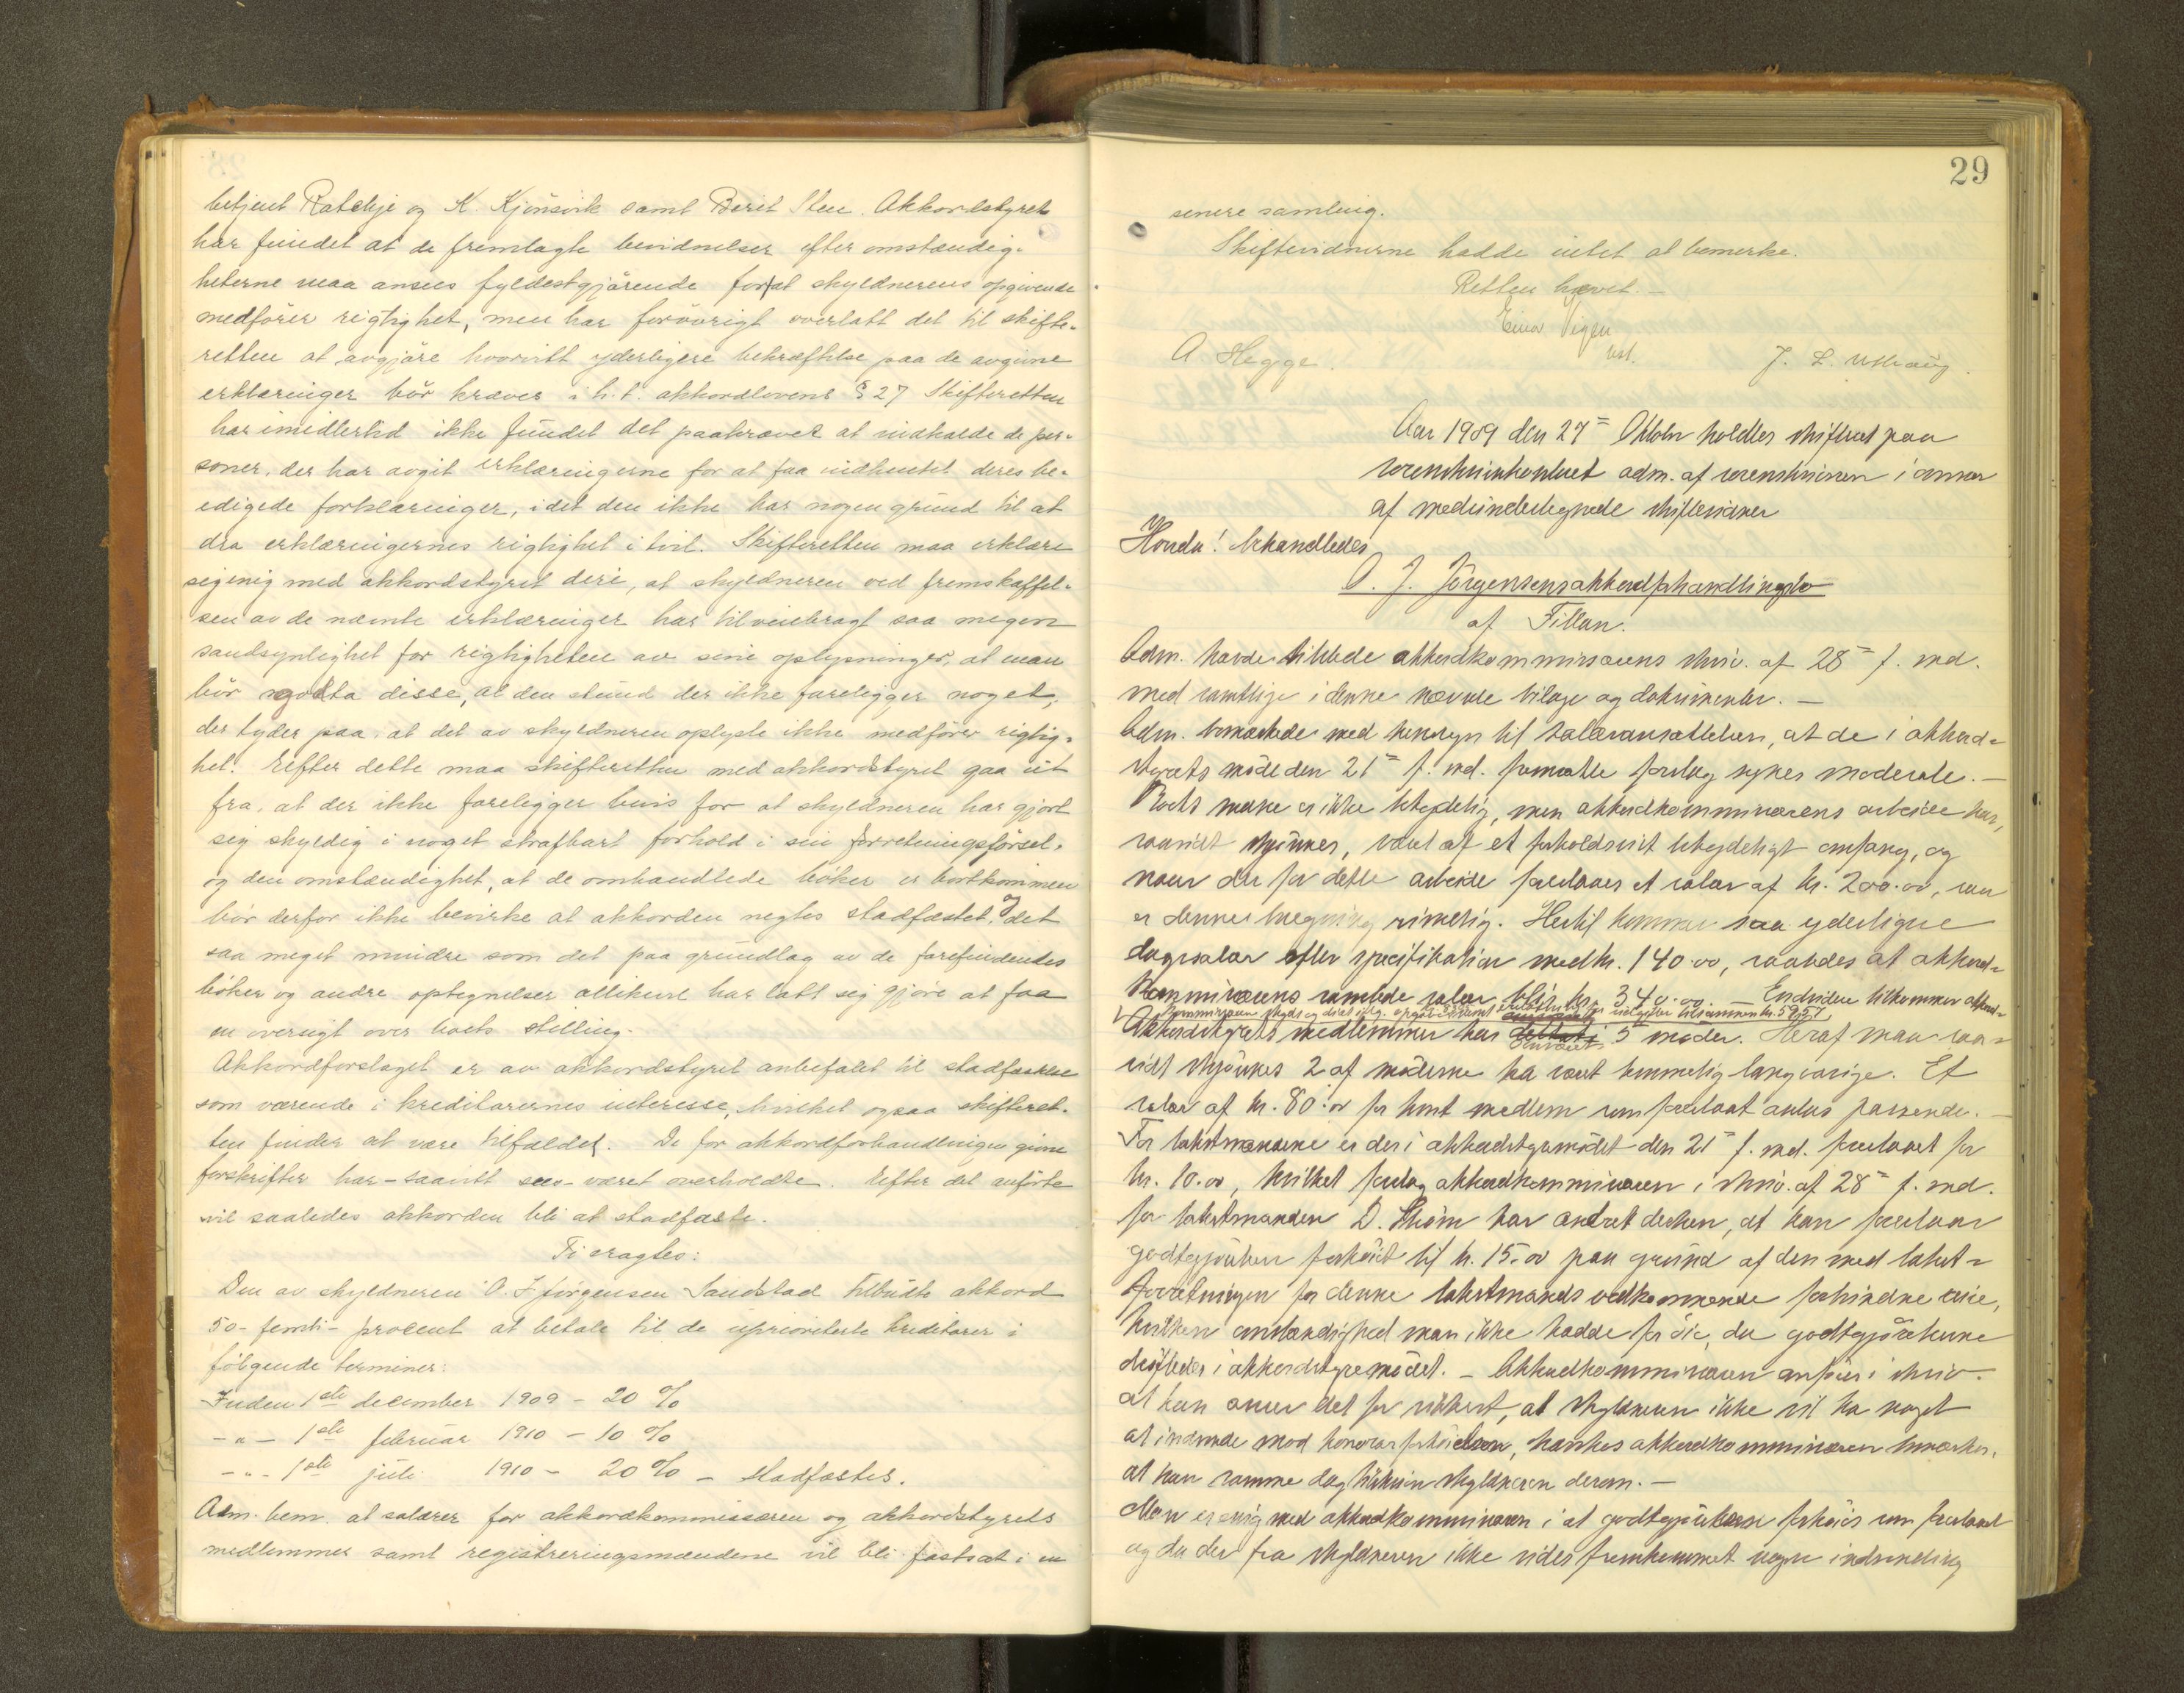 betjent Ratchje og K. Kjönsvik samt Berit Sten. Akkordstyret
har fundet at de fremlagte bevidnelser efter omstændig-
heterne maa ansees fyldestgjörende for at skyldnerens opgivende
medfører rigtighet, men har forövrigt overlatt det til skifte-
retten at avgjöre hvorvitt yderligere bekræftelse paa de avgivne
erklæringer bör kræves i h.t. akkordlovens § 27 Skifteretten
har imidlertid ikke fundet det paakrævet at indkalde de per-
soner, der har avgit erklæringerne for at faa indhentet deres be-
edigede forklaringer, idet den ikke har nogen grund til at
dra erklæringernes rigtighet i tvil. Skifteretten maa erklære
sig enig med akkordstyret deri, at skyldneren ved fremskaffel-
sen av de nævnte erklæringer har tilveiebragt saa megen
sandsynlighet for rigtigheten av sine oplysninger, at man
bör godta disse, al den stund der ikke foreligger noget,
der tyder paa at det av skyldneren oplyste ikke medförer rigtig-
het. Efter dette maa skifteretten med akkordstyret gaa ut
fra, at der ikke foreligger bevis for at skyldneren har gjort
sig skyldig i noget strafbart forhold i sin forretningsförsel,
og den omstændighet, at de omhandlede böker er bortkommen
bör derfor ikke bevirke at akkorden negtes stadfæstet, og det
saa meget mindre som det paa grundlag av de forefindendes
böker og andre optegnelser allikevel har latt sig gjöre at faa
en oversigt over boets stilling.
Akkordforslaget er av akkordstyret anbefalet til stadfæstelse
som værende i kreditorernes interesse, hvilket ogsaa skifteret-
ten finder at være tilfældet. De for akkordforhandlingen givne
forskrifter har - saavitt sees - været overholdte. Efter det anförte
vil saaledes akkorden bli at stadfæste.
Ti eragtes:
Den av skyldneren O. J. Jörgensen Sandstad tilbudte akkord
50 - femti - procent at betale til de uprioriterte kreditorer i
fölgende terminer:
Inden 1ste december 1909 - 20 %
- " - 1ste februar 1910 - 10 %
- " - 1ste juli 1910 - 20 % - stadfæstes.
Adm. bem. at salærer for akkordkommissæren og akkordstyrets
medlemmer samt registreringsmændene vil bli fastsat i en
29
senere samling.
Skiftevidnerne hadde intet at bemerke.
Retten hævet. -
Einar Vigen
A Hegge.
J. L.
Aar 1909 den 27de Oktober holdtes skifteret paa
sorenskriverkontoret adm. af sorenskriveren i nærvær
af medundertegnede skiftevidner
Hvorda! behandledes
O. J. Jörgensens akkordforhandlingsbo
af Fillan.
Adm. havde tilstede akkordkommissærens skriv. af 28de f. md.
med samtlige i denne nævnte bilage og dokumenter. -
Adm. bemærkede med hensyn til salæransættelsen, at de i akkord-
styrets möde den 21de f. md. fremsatte forslag synes moderate. -
Boets masse er ikke betydelig, men akkordkommissærens arbeide har,
saavidt skjönnes, været af et forholdsvist betydeligt omfang, og
naar der for dette arbeide foreslaaes et salær af kr. 200.00, saa
er denne beregning rimelig. Hertil kommer saa yderligere
dagsalær efter specifikation med kr. 140.00, saaledes at akkord-
kommissærens samlede salær blir kr. 340.00. - Endvidere tilkommer akkord-
kommissæren skyds og diæt utgifter tilsammen kr. 59.57.
Akkordstyrets medlemmer har 5 möder. Heraf maa saa-
vidt skjönnes 2 af möderne ha været temmelig langvarige. Et
salær af kr. 80.00 for hvert medlem som foreslaat antas passende. -
For takstmændene er der i akkordstyremödet den 21de f. md. foreslaaet for
kr. 10.00, hvilket forslag akkordkommissæren i skriv. af 28de f. md.
for takstmanden D. Ström har ændret derhen, at han foreslaar
godtgjörelsen forhöiet til kr. 15.00 paa grund af den med takst-
forretningen for denne takstmands vedkommende forbundne reise,
hvilken omstændighed man ikke hadde for öie, da godtgjörelserne
dröftedes i akkordstyremödet. - Akkordkommissæren anförer i skriv.
at han anser det for sikkert, at skyldneren ikke vil ha noget
at indvende mod honorarforhöielsen, hvorhos akkordkommissæren bemærker,
at han samme dag tilskriver skyldneren derom. -
Man er enig med akkordkommissæren i at godtgjörelsen forhöies som foreslaaet
og da der fra skyldneren ikke vides fremkommet nogen indvending